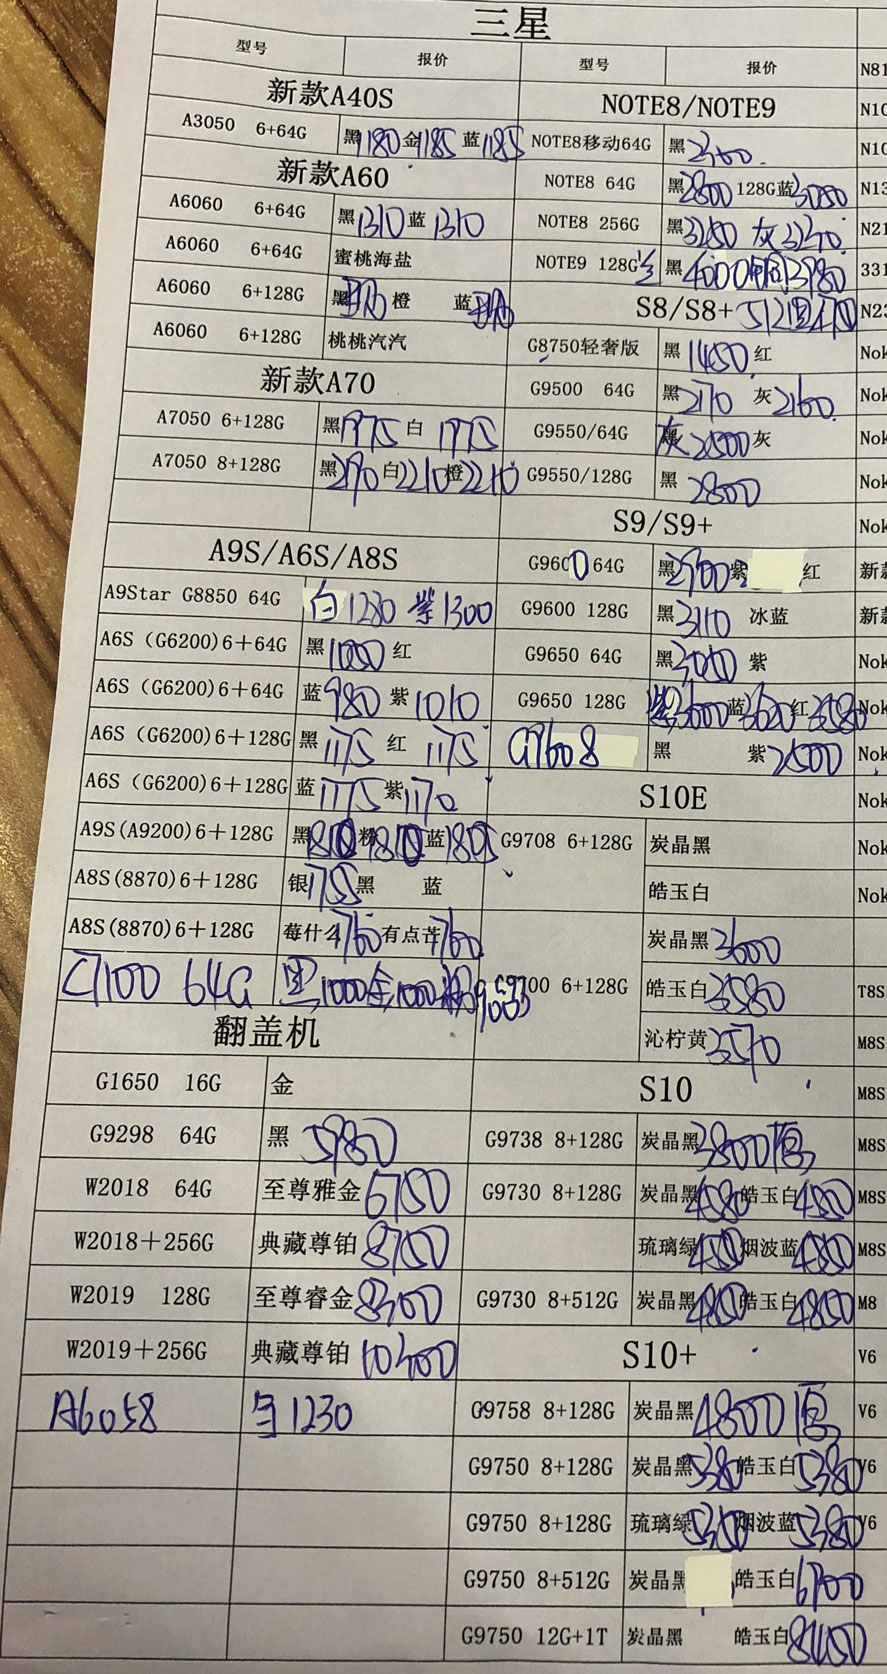 三星
型号 报价 型号 报价 N81
新款A40S NOTE8/NOTE9 N10
A3050 6+64G 黑1180金1185 蓝1185 NOTE8移动64G 黑 N10
新款A60 NOTE8 64G 黑2800 128G蓝3050 N13
A6060 6+64G 黑1310蓝1310 NOTE8 256G 黑 灰 N21
A6060 6+64G 蜜桃海盐 NOTE9 128G 黑4000 331
A6060 6+128G 黑 橙 蓝 S8/S8+ N23
A6060 6+128G 桃桃汽汽 G8750轻奢版 黑1450红 Nok
新款A70 G9500 64G 黑2170 灰2160 Nok
A7050 6+128G 黑1975白 1975 G9550/64G 灰2500灰 Nok
A7050 8+128G 黑 白2210橙2210 G9550/128G 黑2800 Nok
S9/S9+ Nok
A9S/A6S/A8S G9600 64G 黑2900紫 红 新款
A9Star G8850 64G 白1280 紫1300 G9600 128G 黑3110 冰蓝 新款
A6S（G6200)6+64G 黑 红 G9650 64G 黑 紫 Nok
A6S（G6200)6+64G 蓝980 紫1010 G9650 128G 蓝 红3580 Nok
A6S（G6200)6+128G 黑1175 红 1175 G9608 黑 紫2500 Nok
A6S（G6200)6+128G 蓝1175紫1170 S10E Nok
A9S(A9200)6+128G 黑1810粉1810蓝1805 G9708 6+128G 炭晶黑 Nok
A8S(8870)6+128G 银 黑 蓝 皓玉白 Nok
A8S(8870)6+128G 莓什么1760有点芒1760 炭晶黑3600
C7100 64G 黑1000金1000 6+128G 皓玉白3580 T8S
翻盖机 沁柠黄3570 M8S
G1650 16G 金 S10 M8S
G9298 64G 黑 5980 G9738 8+128G 炭晶黑3800 M8S
W2018 64G 至尊雅金6750 G9730 8+128G 炭晶黑4580皓玉白 M8S
W2018+256G 典藏尊铂8750 琉璃绿 烟波蓝 M8S
W2019 128G 至尊睿金8300 G9730 8+512G 炭晶黑4850皓玉白4850 M8
W2019+256G 典藏尊铂 S10+ V6
A6058 1230 G9758 8+128G 炭晶黑4800 V6
G9750 8+128G 炭晶黑5380皓玉白5380 V6
G9750 8+128G 琉璃绿 烟波蓝5380 V6
G9750 8+512G 炭晶黑 皓玉白6700
G9750 12G+1T 炭晶黑 皓玉白